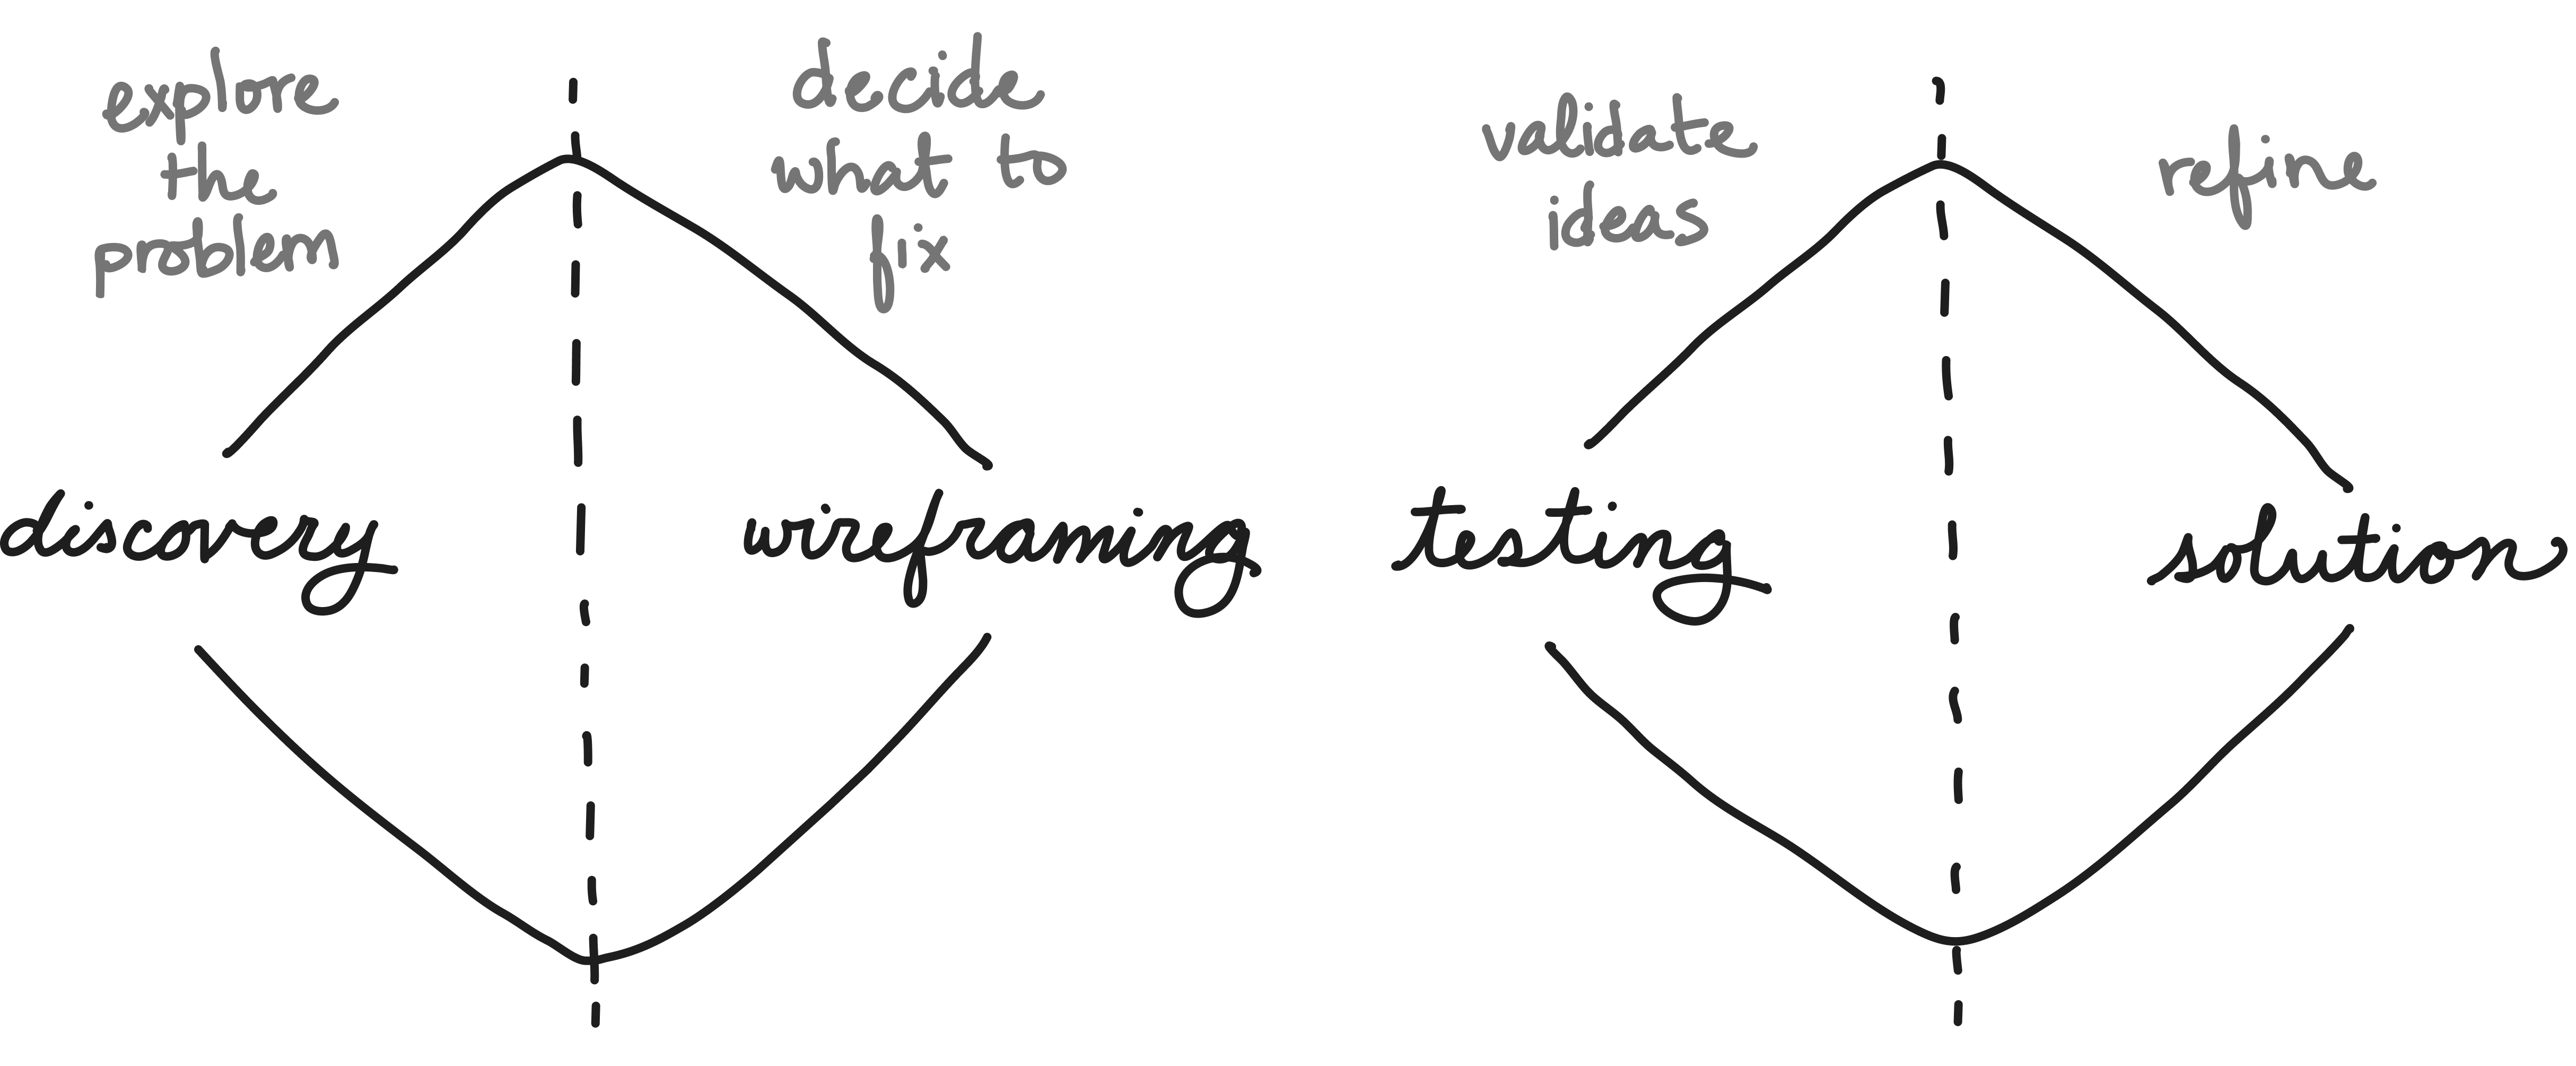 explore
the
problem
decide
what to
fix
validate
ideas
refine
discovery
wireframing
testing
solution